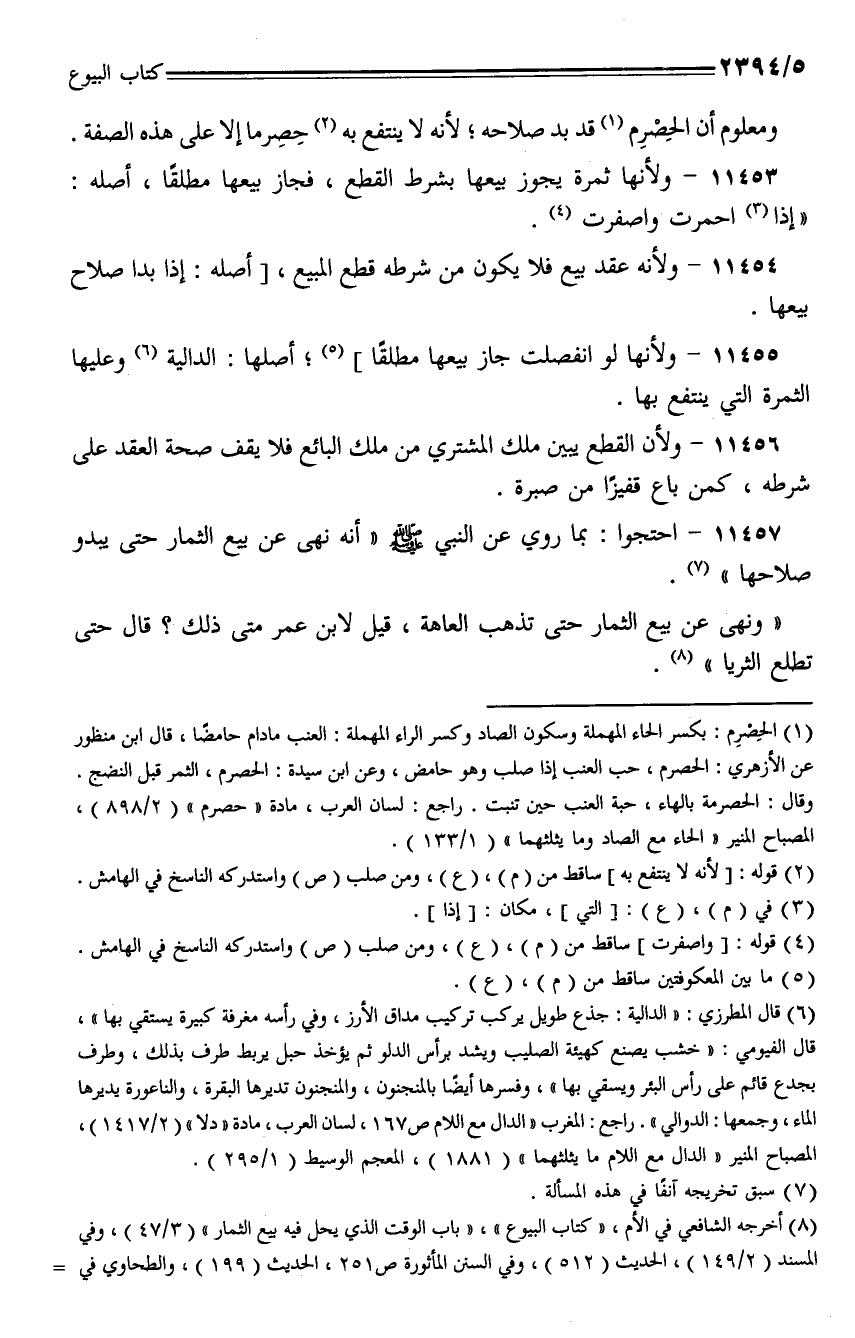 ٢٣٩٤/٥ كتاب البيوع
ومعلوم أن الحِصْرِم (١) قد بد صلاحه ؛ لأنه لا ينتفع به (٢) حِصِرما إلا على هذه الصفة .
١١٤٥٣ – ولأنها ثمرة يجوز بيعها بشرط القطع ، فجاز بيعها مطلقًا ، أصله :
« إذا (٣) احمرت واصفرت (٤) .
١١٤٥٤ – ولأنه عقد بيع فلا يكون من شرطه قطع المبيع ، [ أصله : إذا بدا صلاح
بيعها .
١١٤٥٥ – ولأنها لو انفصلت جاز بيعها مطلقًا ] (٥) ؛ أصلها : الدالية (٦) وعليها
الثمرة التي ينتفع بها .
١١٤٥٦ – ولأن القطع يبين ملك المشتري من ملك البائع فلا يقف صحة العقد على
شرطه ، كمن باع قفيزًا من صبرة .
١١٤٥٧ – احتجوا : بما روي عن النبي ﷺ « أنه نهى عن بيع الثمار حتى يبدو
صلاحها » (٧) .
« ونهى عن بيع الثمار حتى تذهب العاهة ، قيل لابن عمر متى ذلك ؟ قال حتى
تطلع الثريا » (٨) .
(١) الحِصْرِم : بكسر الحاء المهملة وسكون الصاد وكسر الراء المهملة : العنب مادام حامضًا ، قال ابن منظور
عن الأزهري : الحصرم ، حب العنب إذا صلب وهو حامض ، وعن ابن سيدة : الحصرم ، الثمر قبل النضج .
وقال : الحصرمة بالهاء ، حبة العنب حين تنبت . راجع : لسان العرب ، مادة « حصرم » ( ٨٩٨/٢ ) ،
المصباح المنير « الحاء مع الصاد وما يثلثهما » ( ١٣٣/١ ) .
(٢) قوله : [ لأنه لا ينتفع به ] ساقط من ( م ) ، ( ع ) ، ومن صلب ( ص ) واستدركه الناسخ في الهامش .
(٣) في ( م ) ، ( ع ) : [ التي ] ، مكان : [ إذا ] .
(٤) قوله : [ واصفرت ] ساقط من ( م ) ، ( ع ) ، ومن صلب ( ص ) واستدركه الناسخ في الهامش .
(٥) ما بين المعكوفتين ساقط من ( م ) ، ( ع ) .
(٦) قال المطرزي : « الدالية : جذع طويل يركب تركيب مداق الأرز ، وفي رأسه مغرفة كبيرة يستقي بها » ،
قال الفيومي : « خشب يصنع كهيئة الصليب ويشد برأس الدلو ثم يؤخذ حبل يربط طرف بذلك ، وطرف
بجدع قائم على رأس البئر ويسقي بها » ، وفسرها أيضًا بالمنجنون ، والمنجنون تديرها البقرة ، والناعورة يديرها
الماء ، وجمعها : الدوالي » . راجع : المغرب « الدال مع اللام ص١٦٧ ، لسان العرب ، مادة « دلا » ( ١٤١٧/٢ ) ،
المصباح المنير « الدال مع اللام ما يثلثهما » ( ١٨٨١ ) ، المعجم الوسيط ( ٢٩٥/١ ) .
(٧) سبق تخريجه آنفًا في هذه المسألة .
(٨) أخرجه الشافعي في الأم ، « كتاب البيوع » ، « باب الوقت الذي يحل فيه بيع الثمار » ( ٤٧/٣ ) ، وفي
المسند ( ١٤٩/٢ ) ، الحديث ( ٥١٢ ) ، وفي السنن المأثورة ص٢٥١ ، الحديث ( ١٩٩ ) ، والطحاوي في =